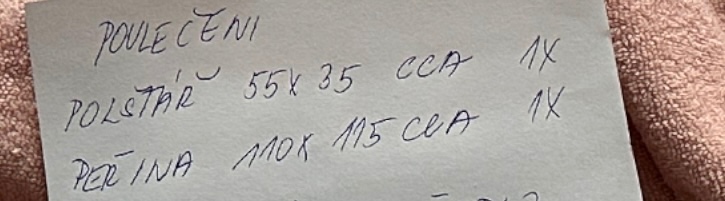 POVLEČENI
POLSTÁŘ 55X35 CCA 1X
PEŘINA 110X115 CCA 1X